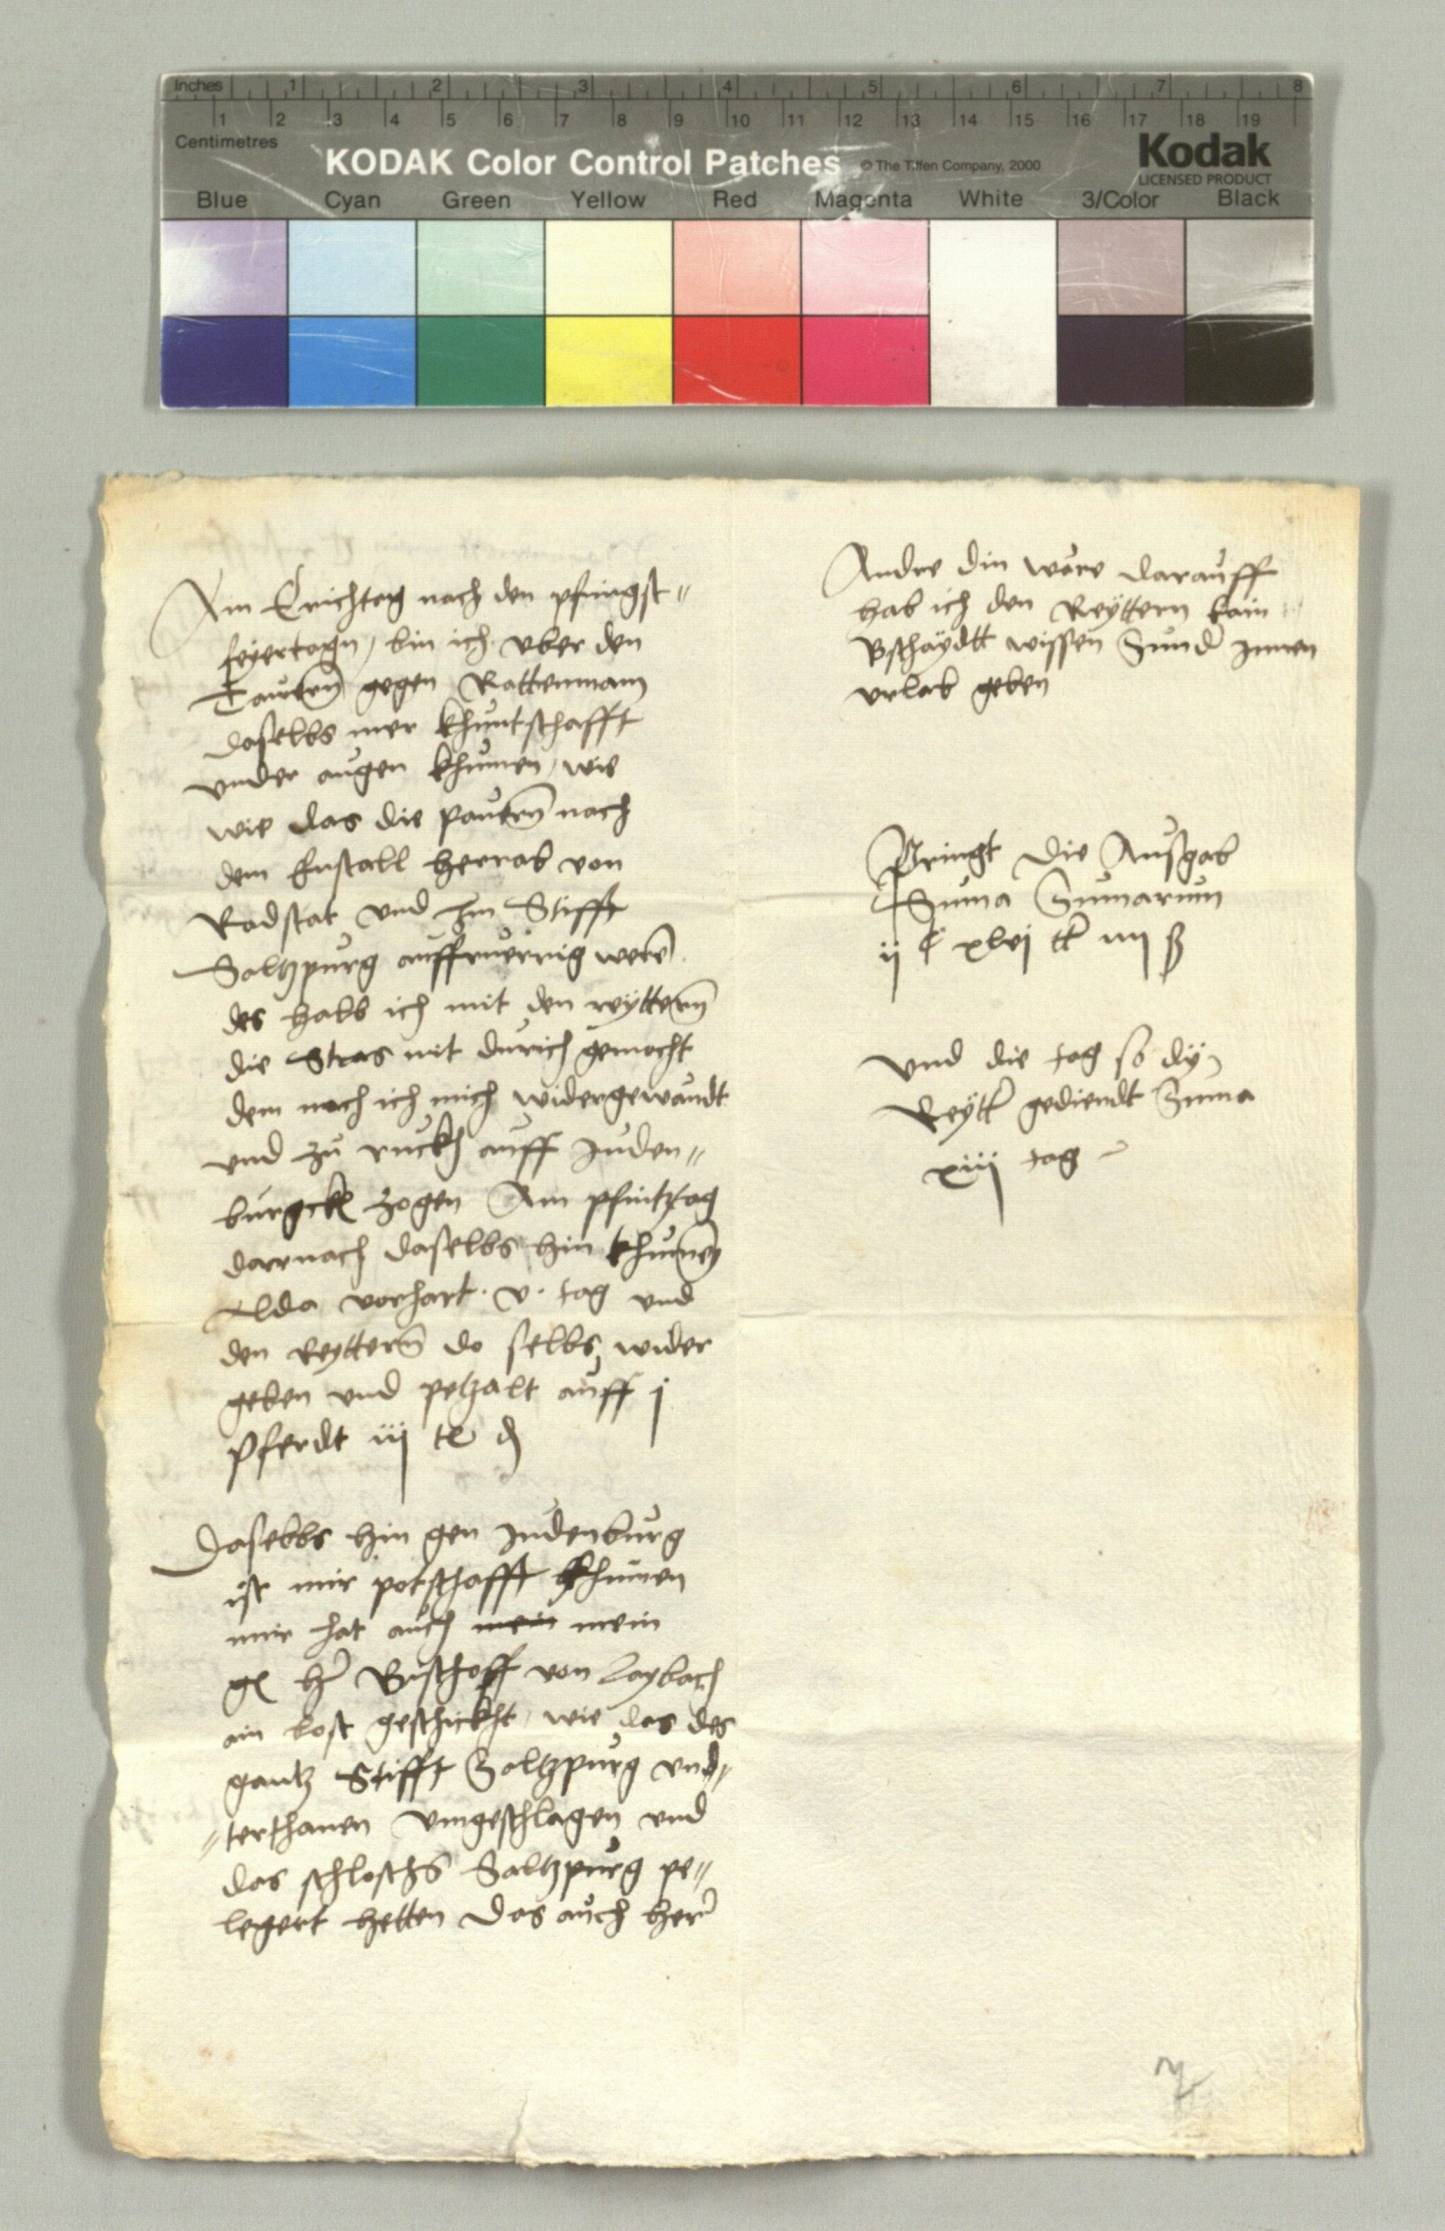 Inches 1 2 3 4 5 6 7 8
1 2 3 4 5 6 7 8 9 10 11 12 13 14 15 16 17 18 19
Centimetres
KODAK Color Control Patches © The Tiffen Company, 2000 Kodak
LICENSED PRODUCT
Blue Cyan Green Yellow Red Magenta White 3/Color Black
Am Erichtag nach den pfingst〃
feyertagn, bin ich uber den
Taurn̄ gegen Rattenmann
daselbs mer khuntschafft
under augen khumen, wie
wie das die paurn̄ nach
dem Enstall herrab von
Radstat und Im Stifft
Saltzpurg auffruerrig wern̄
des halb ich mit den reyttern̄
die Stras nit durich gemocht
dem nach ich mich widergewandt
und zu ruckh auff Juden〃
burgckh zogen Am pfintztag
darnach daselbs hin khumen̄
Alda vorhart · v · tag und
den Reyttern̄ do selbs wider
geben und petzalt auff j
pferdt iij tl ₰
Daselbs hin gen Judenburg
ist mir potschafft khumen
mir hat auch mein mein
g h Bischoff von Laybach
ain post geschickht, wie das des
gantz Stifft Saltzpurg und〃
〃terthanen umgeschlagen und
das schloschs Saltzpurg pe〃
legert hetten Das auch herr
Andre din wäre darauff
hab ich den Reyttern kain
Bschäydtt wissen Sunder Innen
urlab geben
Pringt die Ausgab
Suma Sumarum
ij C xlvj tl iiij ß
Und die tag so dy
Reytter gediendt Suma
xiij tag
2